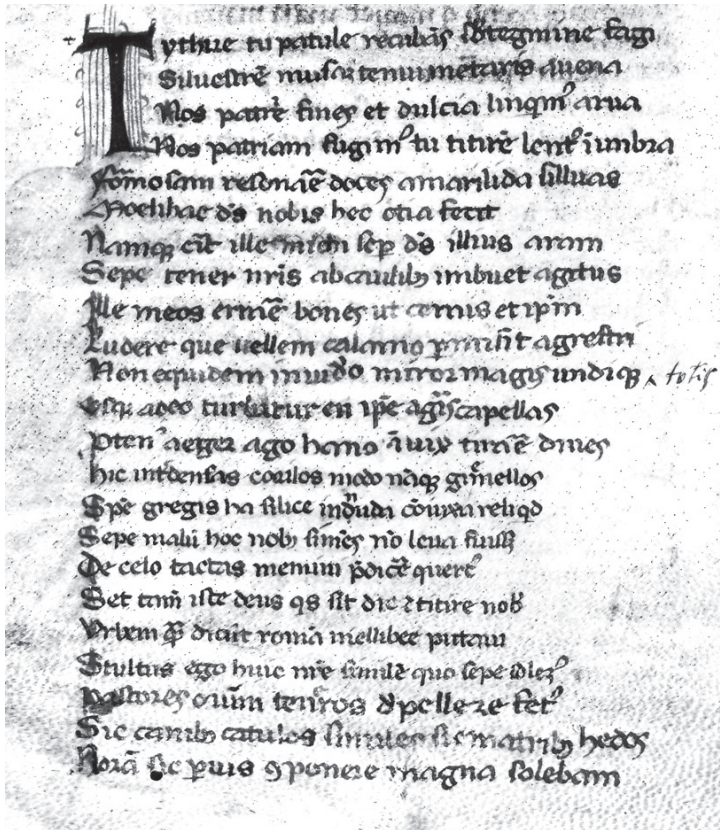 Tythire tu patule recubās sb tegmine fagi
Siluestrē musā tenui meditaris auena
Nos patrie fines et dulcia linqimꝰ arua
Nos patriam fugimꝰ tu titire lentꝰ ī umbra
formosam resonare doces amarilida silluas
O melibee dꝰs nobis hec otia fecit
Namqꝫ erit ille michi sep dꝰs illius aram
Sepe tener nr̄is ab ouilibꝫ imbuet agnus
Ille meos errare boues ut cernis et ip̄m
Ludere que uellem calamo ꝑmisit agresti
Non equidem inuideo miror magis undiqꝫ ‸ totis
usqꝫ adeo turbatur en ip̄e capellas
aeger ago hanc titire
hic int̄ densas corilos modo nāqꝫ gemellos
Spē gregis ha silice in nuda cōnixa reliqd
Sepe malū hoc nobꝫ si mēs nō leua fuiss
De celo tactas memini p̄dicē querꝰ
Set tam̄ iste deus qs sit dic titire nob
Urbem qm̄ dicūt romā mellibee putaui
Stultus ego huic nr̄e similē quo sepe solemꝰ
pastores ouium teneros depellere fetꝰ
Sic canibꝫ catulos similes sic matribꝫ hedos
Norā sic ꝑuis ꝯponere magna solebam